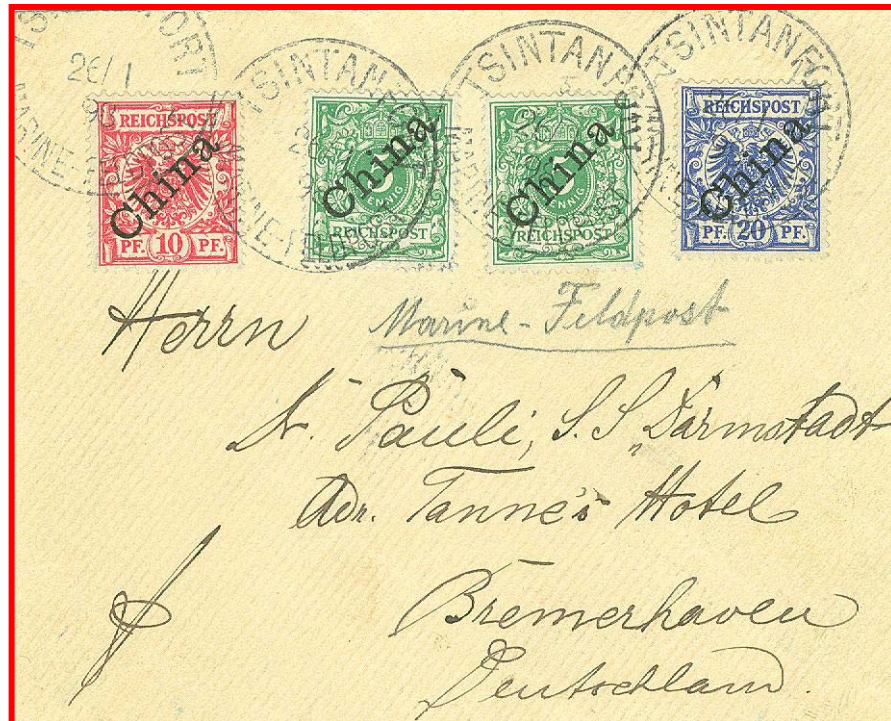 TSINTANFORT
26/1
98
MARINE-
TSINTANFORT
MARINE-FELDPOST
TSINTANFORT
MARINE-FELDPOST
TSINTANFORT
MARINE-
REICHSPOST
China
PF. 10 PF.
China
5
PFENNIG
REICHSPOST
China
5
PFENNIG
REICHSPOST
REICHSPOST
China
PF. 20 PF.
Herrn Marine-Feldpost
Pauli, S.S. „Darmstadt
Adr. Tanne's Hotel
Bremerhaven
Deutschland.